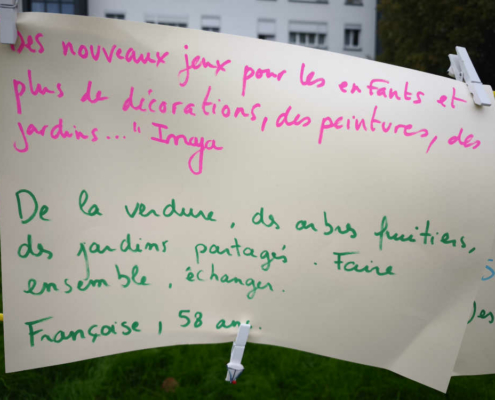 Des nouveaux jeux pour les enfants et
plus de décorations, des peintures, des
jardins..." Imaya
De la verdure, des arbres fruitiers,
des jardins partagés. Faire
ensemble, échanger.
Françoise, 58 ans.